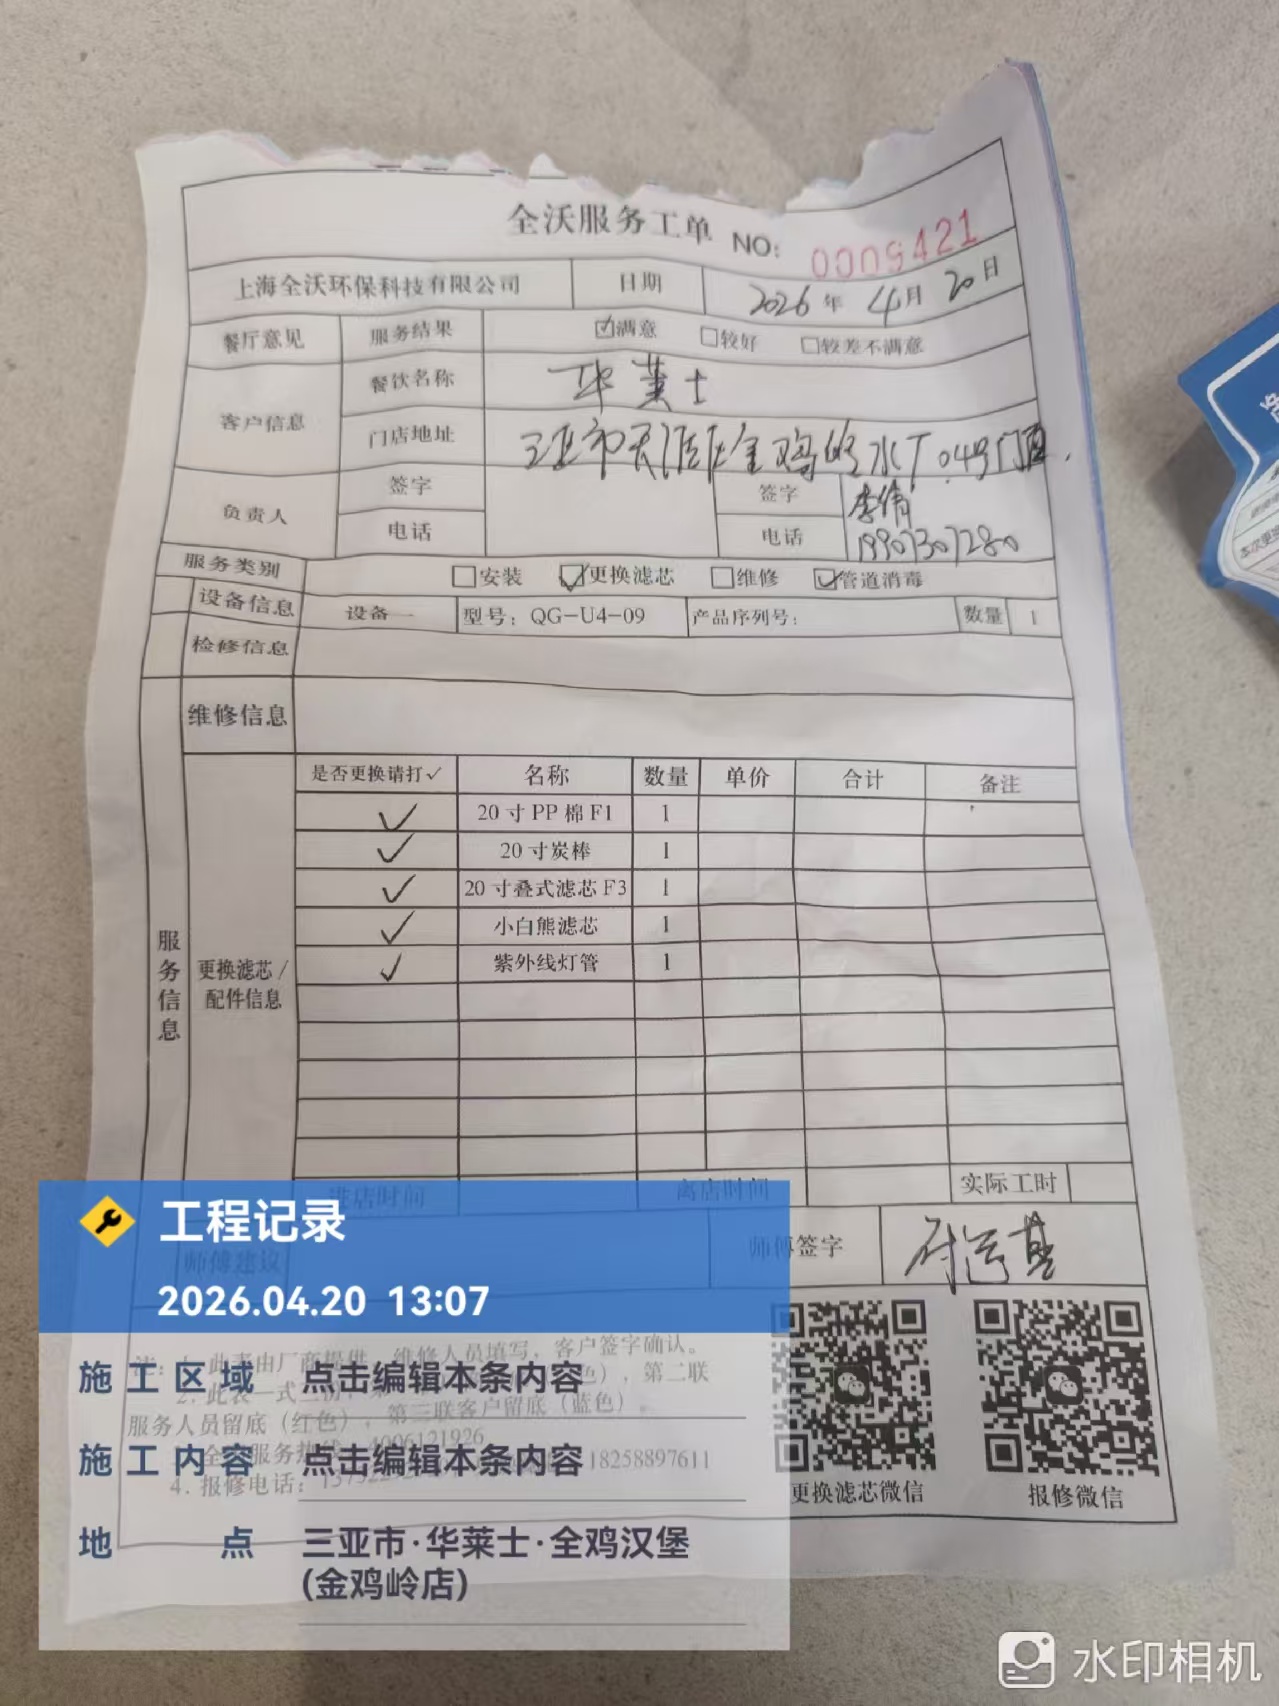 全沃服务工单 NO: 0009421
上海全沃环保科技有限公司 日期 2026年 4月 20日
餐厅意见 服务结果 ☑满意 □较好 □较差不满意
客户信息 餐饮名称 华莱士
门店地址 三亚市天涯区金鸡岭水厂049号门面.
负责人 签字 签字 李倩
电话 电话 19907307280
服务类别 □安装 ☑更换滤芯 □维修 ☑管道消毒
设备信息 设备一 型号：QG-U4-09 产品序列号： 数量 1
检修信息
维修信息
服务信息
更换滤芯/配件信息
是否更换请打✓ 名称 数量 单价 合计 备注
✓ 20寸PP棉F1 1
✓ 20寸炭棒 1
✓ 20寸叠式滤芯F3 1
✓ 小白熊滤芯 1
✓ 紫外线灯管 1
进店时间 离店时间 实际工时
师傅建议 师傅签字
注：1. 此表由厂商提供，维修人员填写，客户签字确认。
2. 此表一式三份，第二联
服务人员留底（红色），第三联客户留底（蓝色）。
3. 全沃服务热线：4006121926
4. 报修电话： 18258897611
更换滤芯微信 报修微信
工程记录
2026.04.20 13:07
施工区域 点击编辑本条内容
施工内容 点击编辑本条内容
地点 三亚市·华莱士·全鸡汉堡
(金鸡岭店)
水印相机